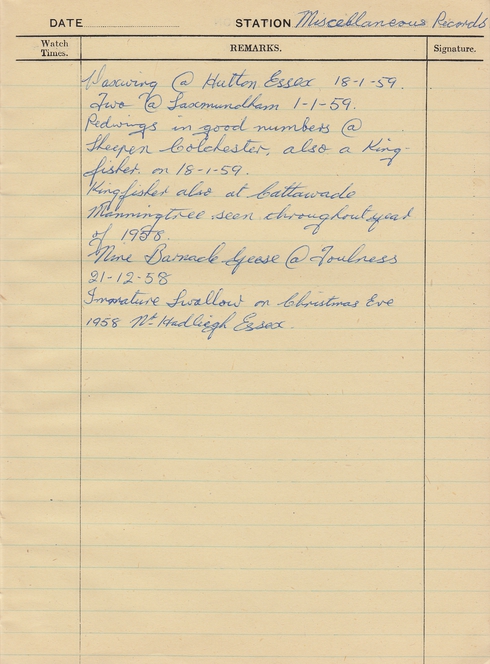 DATE STATION Miscellaneous Records
Watch Times. REMARKS. Signature.
Waxwing @ Hutton Essex 18-1-59.
Two @ Saxmundham 1-1-59.
Redwings in good numbers @
Sheepen Colchester, also a King-
fisher. on 18-1-59.
Kingfisher also at Cattawade
Manningtree seen throughout year
of 1958.
Nine Barnacle Geese @ Foulness
21-12-58
Immature Swallow on Christmas Eve
1958 Nr. Hadliegh Essex.